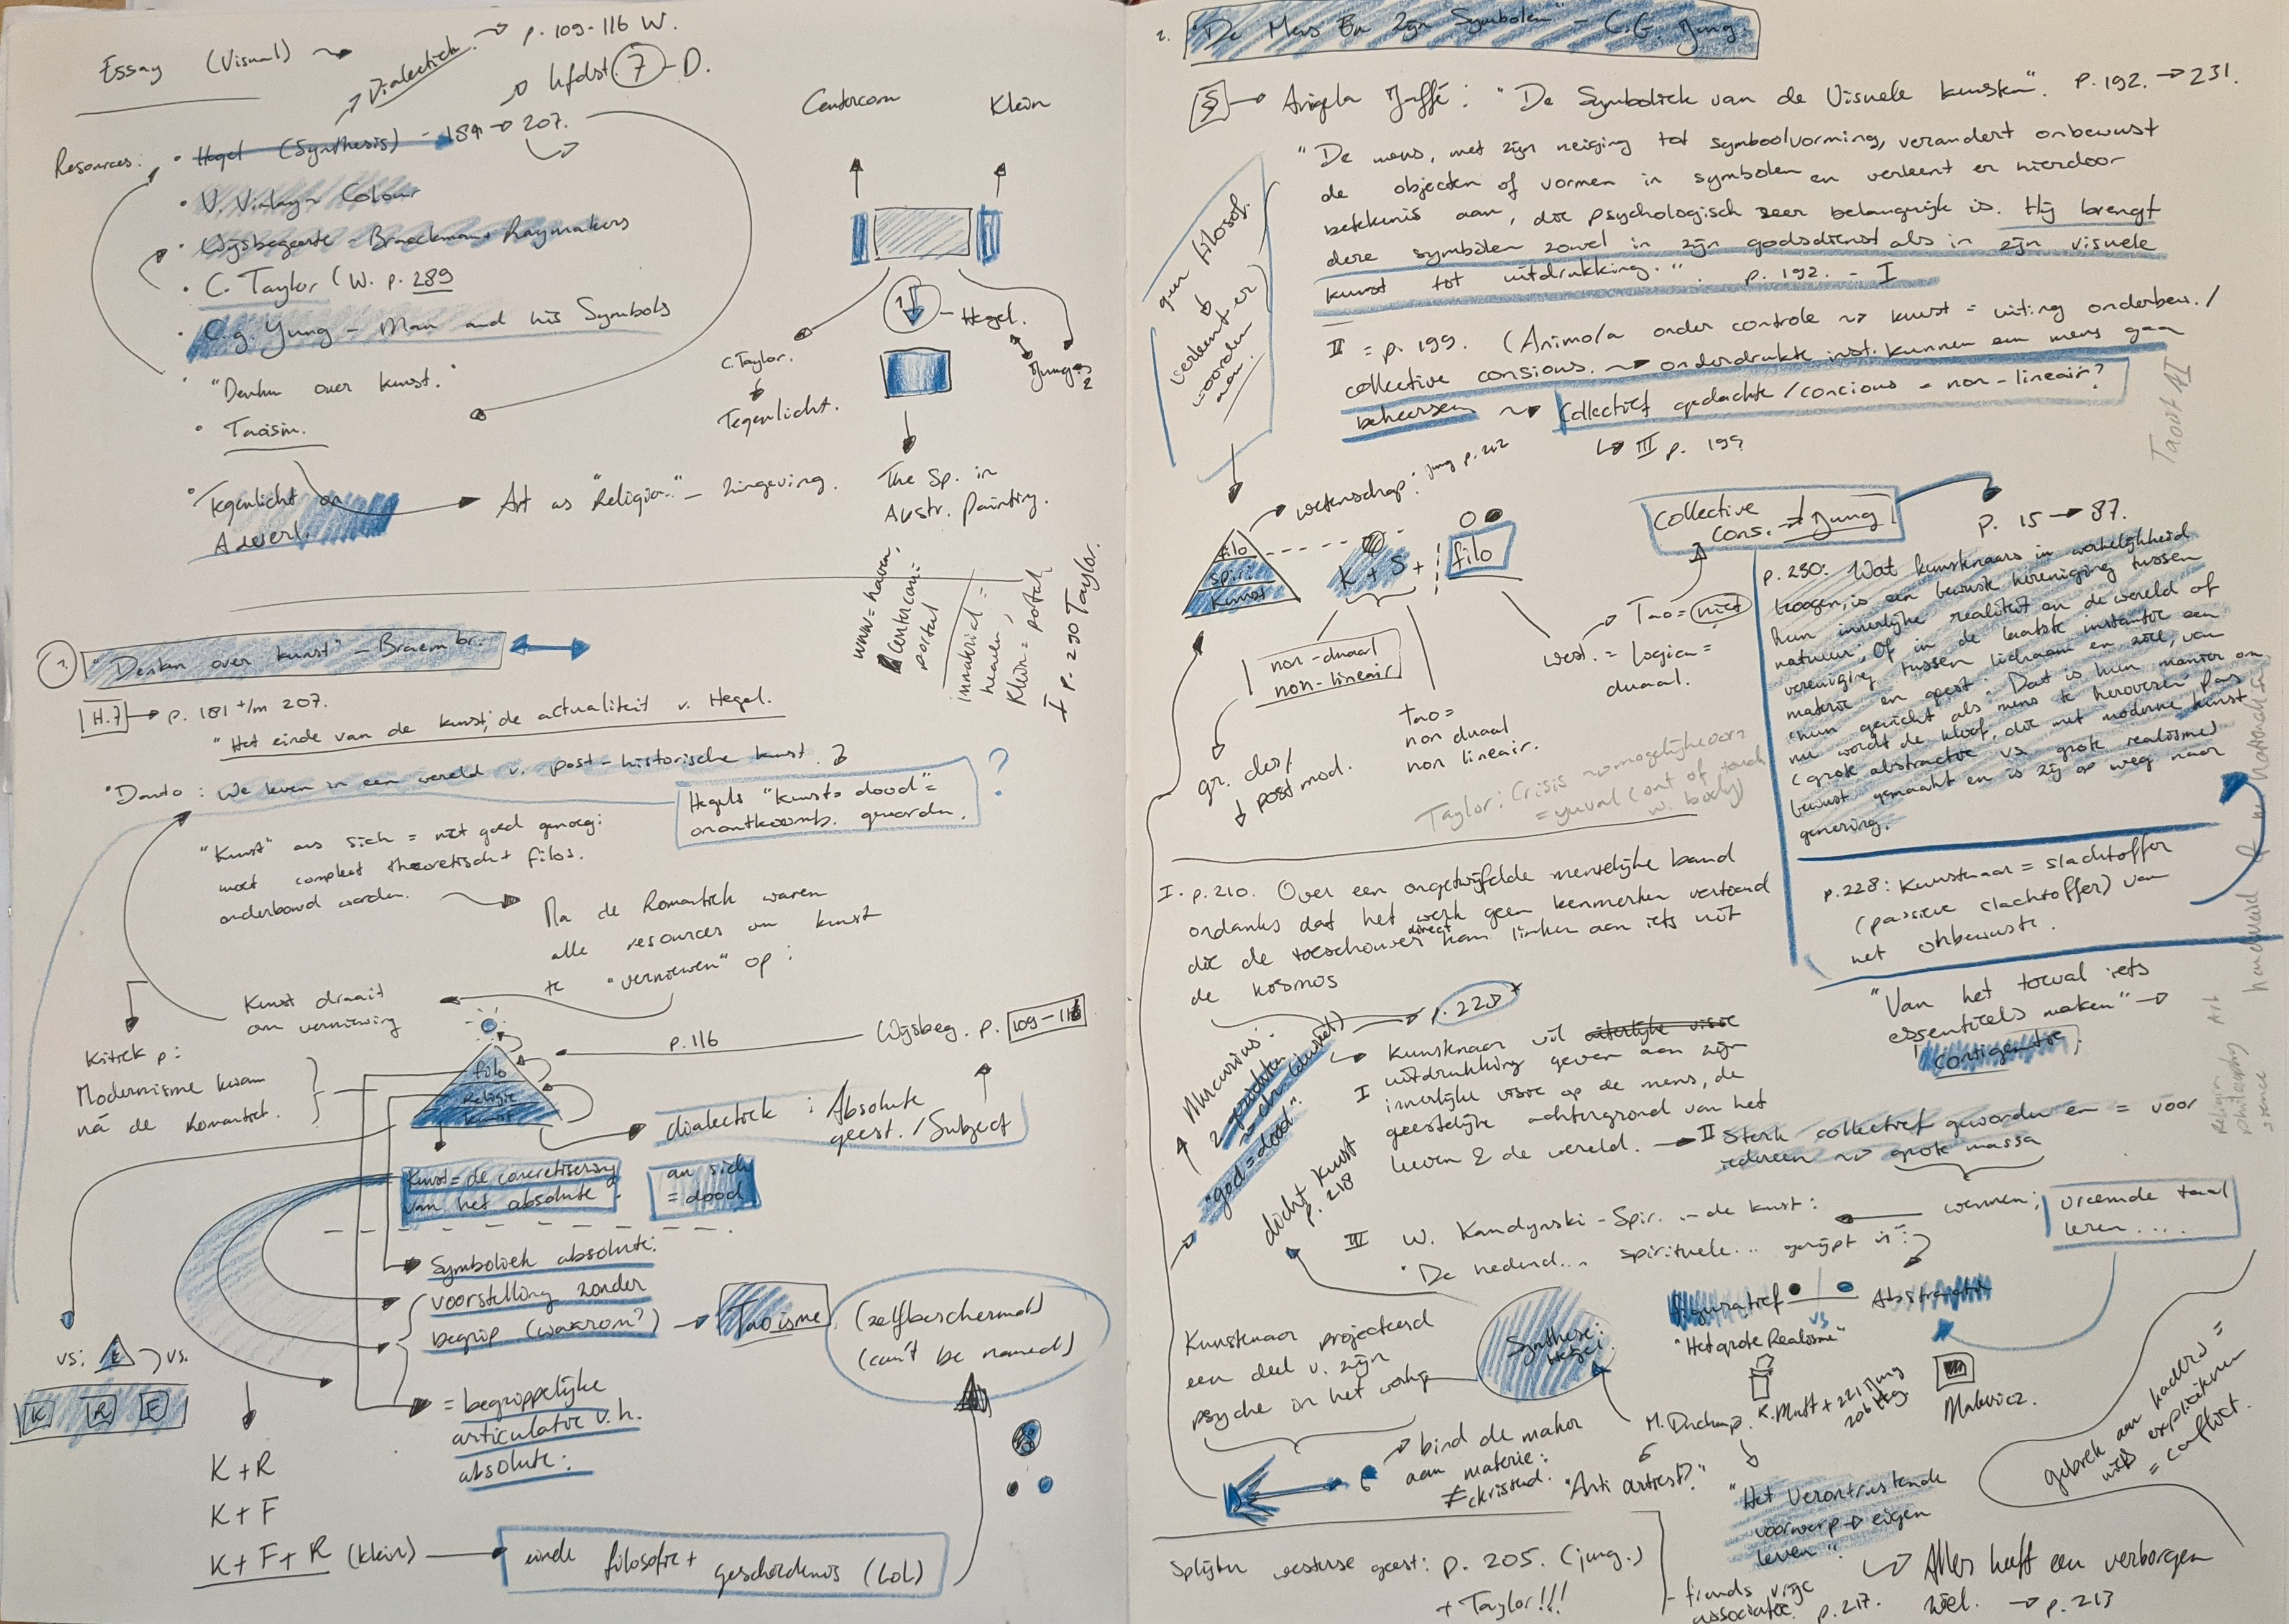 Essay (Visual)
Dialectiek. p. 109-116 W.
hfdst. 7 - D.
Resources:
• Hegel (Synthesis) - 181 → 207.
• V. Vinlay - Colour
• Wijsbegeerte - Braeckman + Raymakers
• C. Taylor (W. p. 289
• C.g. Jung - Man and his Symbols
• "Denken over kunst."
• Taoism.
• Tegenlicht
Art as "Religion" - Zingeving.
Centercom Klein
1 - Hegel.
C. Taylor.
Tegenlicht.
Jung 2
The Sp. in
Abstr. painting.
www = haven,
Centercom =
portal
immaterial =
heaven,
Klein = portal
I p. 290 Taylor.
1. "Denken over kunst" - Braembr.
H.7 → p. 181 t/m 207.
"Het einde van de kunst; de actualiteit v. Hegel.
• Danto: We leven in een wereld v. post-historische kunst.
Hegels "kunst = dood" =
onontkoomb. geworden.
?
"Kunst" an sich = niet goed genoeg:
moet compleet theoretisch + filos.
onderbouwd worden.
Na de Romantiek waren
alle resources om kunst
te "vernieuwen" op:
Kunst draait
om vernieuwing
Kritiek p:
Modernisme kwam
ná de Romantiek.
p. 116
Wijsbeg. p. 109-116
filo
Religie
kunst
dialectiek: Absolute
geest. / Subject
Kunst = de concretisering
van het absolute.
an sich
= dood
Symboliek absolute:
voorstelling zonder
begrip (waarom?)
Taoisme
(zelfbeschermend)
(can't be named)
= begrippelijke
articulatie v.h.
absolute:
vs: vs.
K R F
K + R
K + F
K + F + R (klein)
einde filosofie +
geschiedenis (LOL)
2. "De Mens En Zijn Symbolen" - C.G. Jung.
Aniela Jaffé: "De Symboliek van de Visuele kunsten". p. 192. → 231.
"De mens, met zijn neiging tot symboolvorming, verandert onbewust
de objecten of vormen in symbolen en verleent er hierdoor
betekenis aan, die psychologisch zeer belangrijk is. Hij brengt
deze symbolen zowel in zijn godsdienst als in zijn visuele
kunst tot uitdrukking." p. 192. - I
geen filosof.
verleent er
woorden
aan.
II = p. 199. (Anima/a onder controle → kunst = uiting onderbew. /
collective consious. → onderdrukte inst. kunnen een mens gaan
beheersen → Collectief gedachte / concious = non-lineair?
III p. 199
wetenschap: Jung p. 202
filo
spiri
kunst
K + S + filo
non-duaal
non-lineair
gr. des/
post mod.
tao =
non duaal
non lineair.
Tao = niet
west. = logica =
duaal.
Collective
Cons. → Jung
p. 15 → 87.
p. 230: Wat kunstenaars in werkelijkheid
beogen, is een bewuste hereniging tussen
hun innerlijke realiteit en de wereld of
natuur; Of in de laatste instantie een
vereniging tussen lichaam en ziel, van
materie en geest. Dat is hun manier om
"hun gewicht als mens te heroveren. Pas
nu wordt de kloof, die met moderne kunst
(grote abstractie vs. grote realisme)
bewust gemaakt en is zij op weg naar
genezing.
p. 228: Kunstenaar = slachtoffer
(passieve slachtoffer) van
het onbewuste.
Taylor: Crisis
(out of touch
w. body)
I. p. 210. Over een ongetwijfelde menselijke band
ondanks dat het werk geen kenmerken vertoond
die de toeschouwer direct kan linken aan iets uit
de kosmos
"Van het toeval iets
essentieels maken" →
contigentie;
Mercurius:
2 gezichten
"god = dood".
dicht kunst
p. 218
p. 228 *
I Kunstenaar wil uiterlijke visie
uitdrukking geven aan zijn
innerlijke visie op de mens, de
geestelijke achtergrond van het
leven & de wereld. → II Sterk collectief geworden en = voor
iedereen → grote massa
Religion
philosophy Art
science
III W. Kandynski - Spir. - de kunst: wennen;
vreemde taal
leren....
figuratief vs Abstractie
"Het grote Realisme"
Kunstenaar projecteerd
een deel v. zijn
psyche in het werk
Synthese:
Hegel.
M. Duchamp.
Malevicz.
bind de maker
aan materie:
"Anti artiest?"
"Het Verontrustende
voorwerp → eigen
leven".
gebrek aan kaders =
niets expliciteren
= conflict.
Splijten westerse geest: p. 205. (jung.)
+ Taylor!!!
- freuds vrije
associatie. p. 217.
Alles heeft een verborgen
ziel. → p. 213